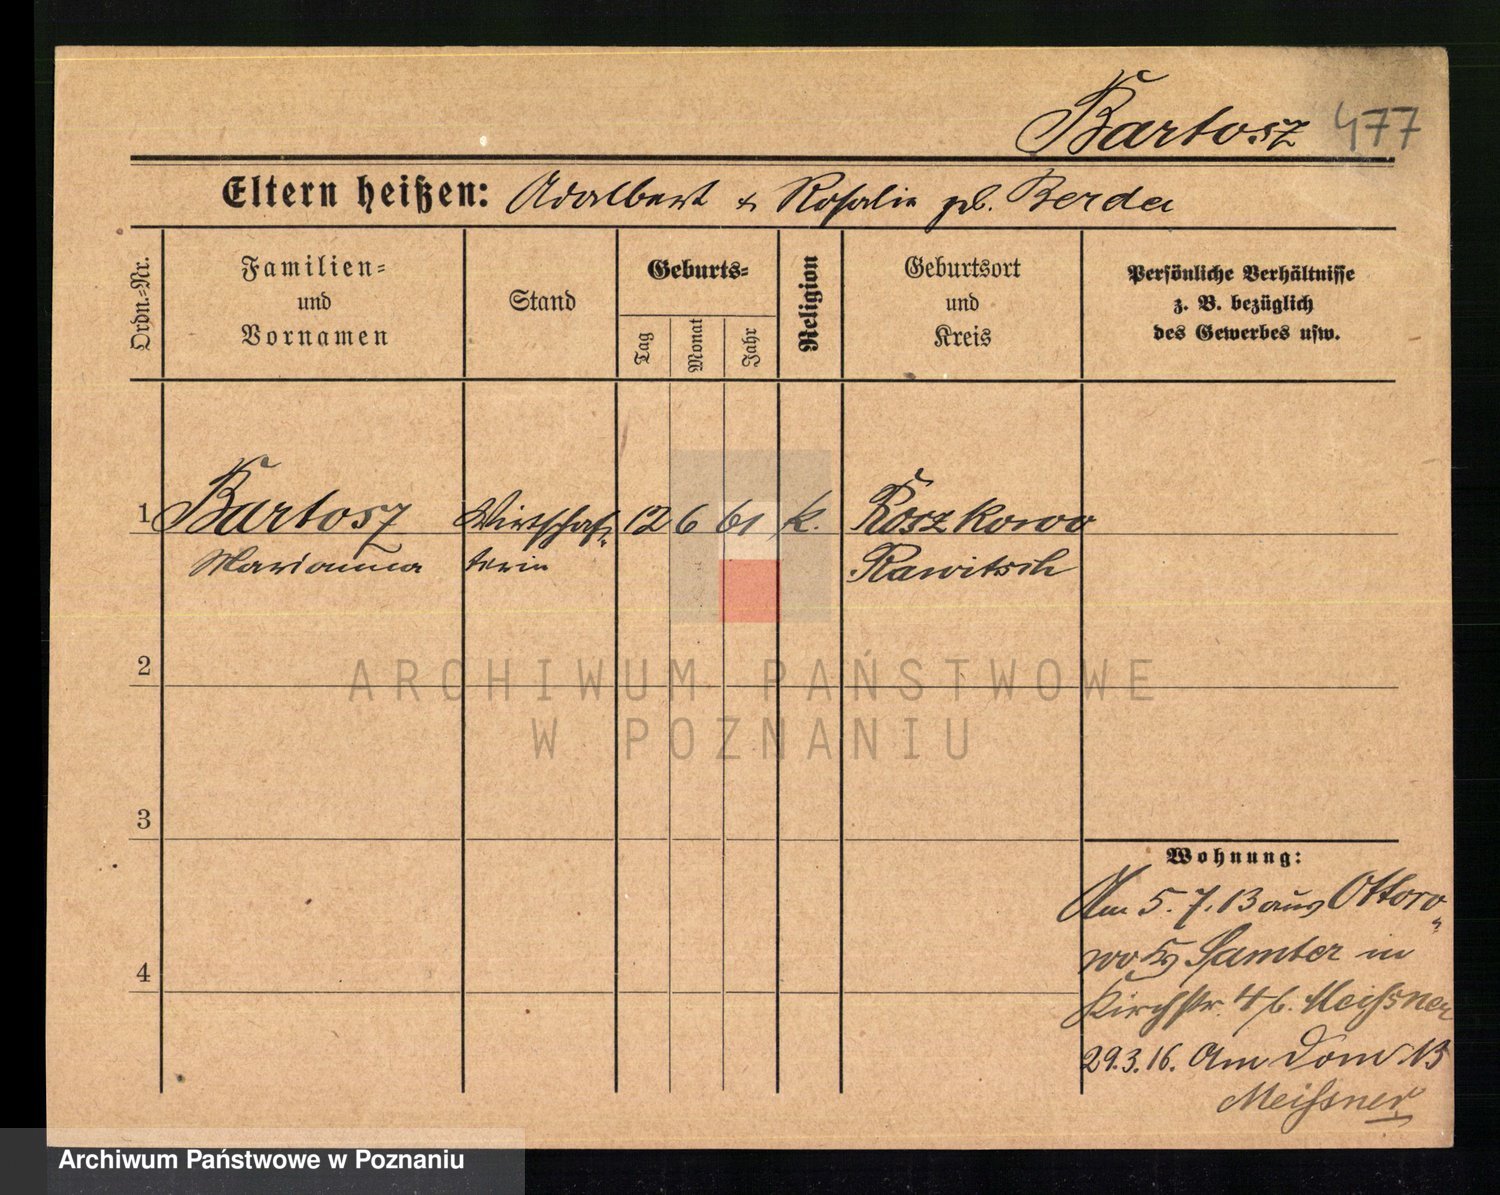 Bartosz 477
Eltern heißen: Adalbert & Rosalie gb. Berda
Ordn.-Nr.
Familien-
und
Vornamen
Stand
Geburts-
Tag
Monat
Jahr
Religion
Geburtsort
und
Kreis
Persönliche Verhältnisse
z. B. bezüglich
des Gewerbes usw.
1 Bartosz Wirtschaf- 12 6 61 k. Roszkowo
Marianna terin Rawitsch
2
ARCHIWUM PAŃSTWOWE
W POZNANIU
3
Wohnung:
Am 5.7.13 aus Ottoro-
wo Kr Samter in
Kirchstr. 4 b. Meißner
4
29.3.16. Am Dom 13
Meißner
Archiwum Państwowe w Poznaniu